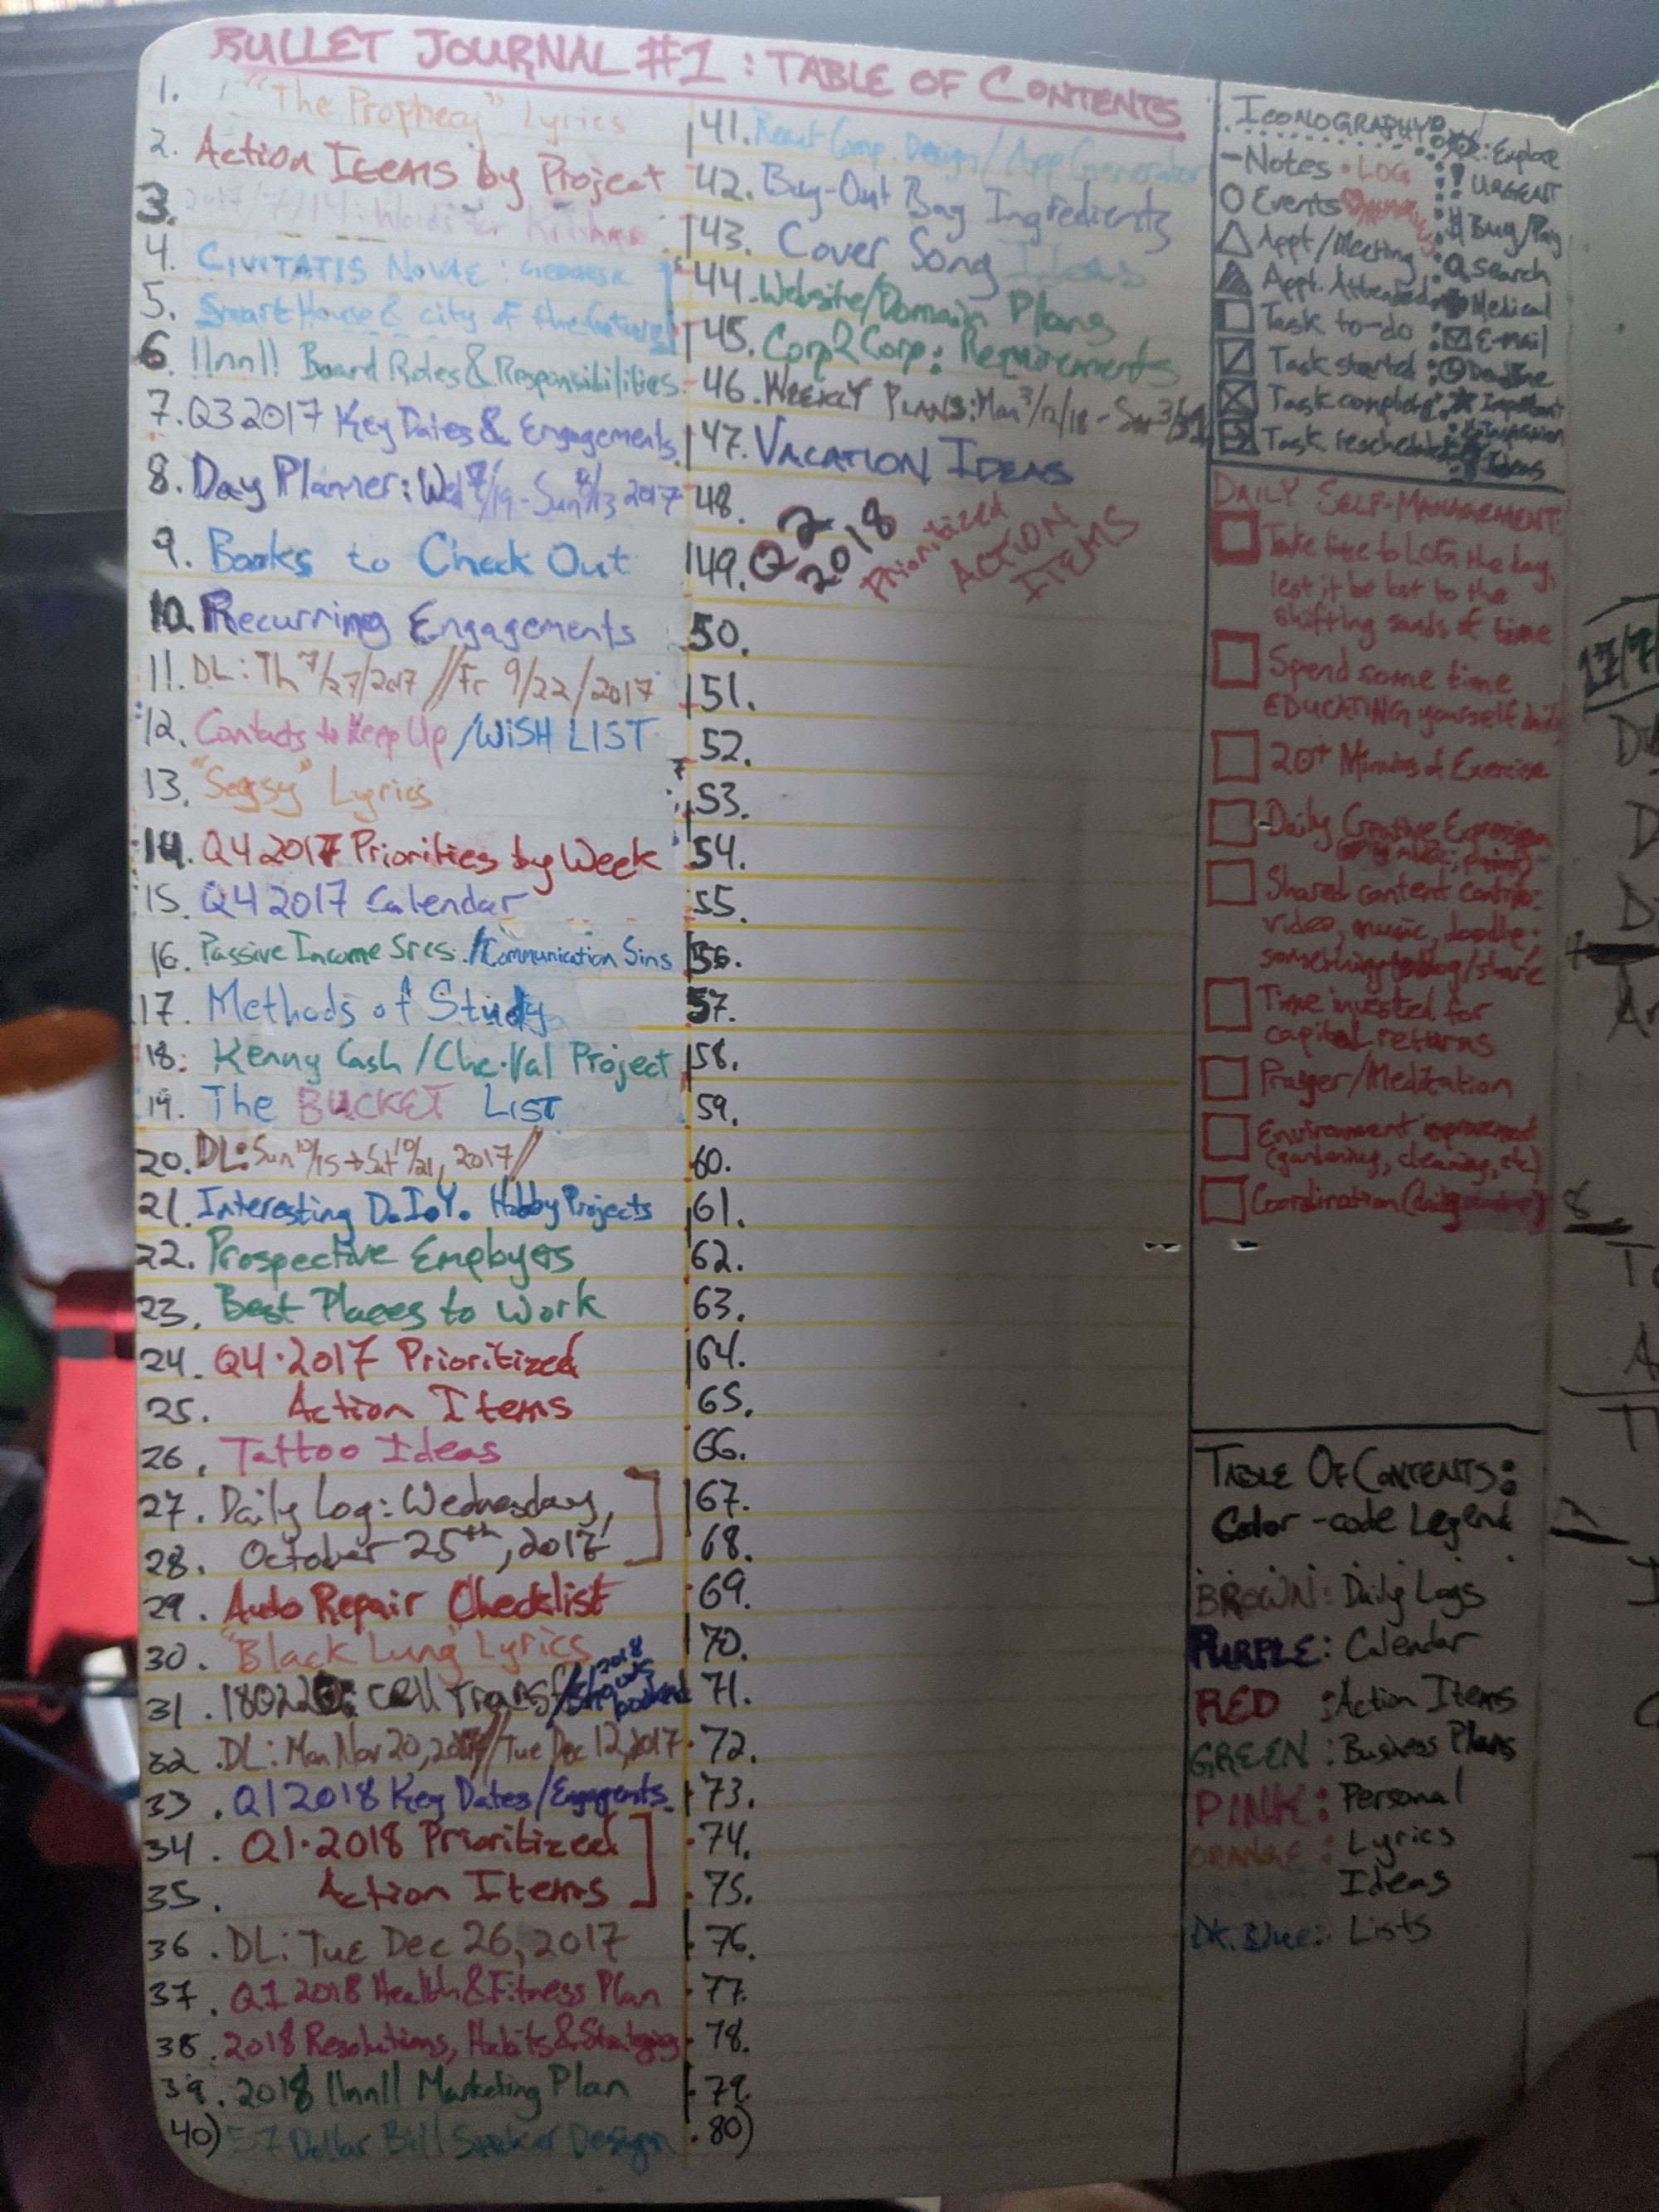 BULLET JOURNAL #1: TABLE OF CONTENTS
1. "The Prophecy" Lyrics
2. Action Items by Project
3. 2017/7/14: Words for
4. CIVITATIS NOVAE:
5. Smart House & city of the future
6. !!nn!! Board Roles & Responsibilities
7. Q3 2017 Key Dates & Engagements
8. Day Planner: Wed 7/19 - Sun 8/13 2017
9. Books to Check Out
10. Recurring Engagements
11. DL: Th 7/27/2017 // Fr 9/22/2017
12. Contacts to Keep Up / WISH LIST
13. "Segsy" Lyrics
14. Q4 2017 Priorities by Week
15. Q4 2017 Calendar
16. Passive Income Srcs. / Communication Sins
17. Methods of Study
18. Kenny Cash / Project
19. The BUCKET LIST
20. DL: Sun 10/15 → Sat 10/21, 2017 //
21. Interesting D.I.Y. Hobby Projects
22. Prospective Employers
23. Best Places to Work
24. Q4·2017 Prioritized
25. Action Items
26. Tattoo Ideas
27. Daily Log: Wednesday,
28. October 25th, 2017
29. Auto Repair Checklist
30. "Black Lung" Lyrics
31. cell Transf / 2018 booked
32. DL: Mon Nov 20, // Tue Dec 12, 2017
33. Q1 2018 Key Dates/Engagents
34. Q1·2018 Prioritized
35. Action Items
36. DL: Tue Dec 26, 2017
37. Q1 2018 Health & Fitness Plan
38. 2018 Resolutions, Habits & Strategies
39. 2018 !!nn!! Marketing Plan
40) Dollar Bill Design
41. React Comp. Design / App Generator
42. Bug-Out Bag Ingredients
43. Cover Song Ideas
44. Website/Domain Plans
45. Corp2Corp: Requirements
46. WEEKLY PLANS: Mon 3/12/18 -
47. VACATION IDEAS
48.
49. Q2 2018 Prioritized ACTION ITEMS
50.
51.
52.
53.
54.
55.
56.
57.
58.
59.
60.
61.
62.
63.
64.
65.
66.
67.
68.
69.
70.
71.
72.
73.
74.
75.
76.
77.
78.
79.
80)
ICONOGRAPHY
: Explore
- Notes · LOG
!: URGENT
O Events
Bug/
Appt/Meeting
: Search
Appt. Attended
: Medical
Task to-do
: E-mail
Task started
: Deadline
Task complete
: Important
Task rescheduled
: Ideas
DAILY SELF-MANAGEMENT:
Take time to LOG the day,
lest it be lost to the
shifting sands of time
Spend some time
EDUCATING yourself daily
20+ Minutes of Exercise
-Daily Creative Expression
Shared content contrib:
video, music, doodle;
something to blog/share
Time invested for
capital returns
Prayer/Meditation
Environment improvement
(gardening, cleaning, etc)
Coordination (daily
TABLE OF CONTENTS:
Color-code Legend
BROWN: Daily Logs
PURPLE: Calendar
RED : Action Items
GREEN : Business Plans
PINK: Personal
ORANGE : Lyrics
Ideas
Dk. Blue: Lists